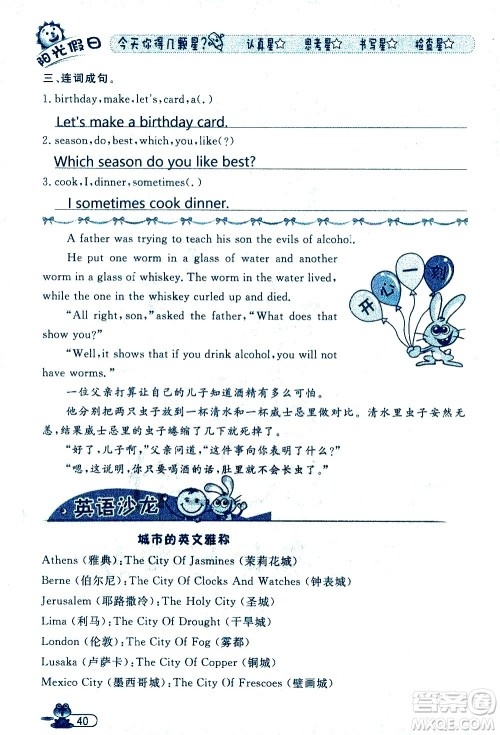 阳光假日
今天你得几颗星? 认真星☆ 思考星☆ 书写星☆ 检查星☆
三、连词成句。
1. birthday,make,let's,card,a(.)
Let's make a birthday card.
2. season,do,best,which,you,like(?)
Which season do you like best?
3. cook,I,dinner,sometimes(.)
I sometimes cook dinner.
A father was trying to teach his son the evils of alcohol.
He put one worm in a glass of water and another
worm in a glass of whiskey. The worm in the water lived,
while the one in the whiskey curled up and died.
“All right, son,”asked the father, “What does that
show you?”
“Well,it shows that if you drink alcohol,you will not
have worms.”
开心一刻
一位父亲打算让自己的儿子知道酒精有多么可怕。
他分别把两只虫子放到一杯清水和一杯威士忌里做对比。清水里的虫子安然无
恙，结果威士忌里的虫子蜷缩了几下就死掉了。
“好了，儿子，”父亲问道，“这件事向你表明了什么？”
“嗯，这说明，你只要喝酒的话，肚里就不会长虫了。”
英语沙龙
城市的英文雅称
Athens (雅典):The City Of Jasmines (茉莉花城)
Berne (伯尔尼):The City Of Clocks And Watches (钟表城)
Jerusalem (耶路撒冷):The Holy City (圣城)
Lima (利马):The City Of Drought (干旱城)
London (伦敦):The City Of Fog (雾都)
Lusaka (卢萨卡):The City Of Copper (铜城)
Mexico City (墨西哥城):The City Of Frescoes (壁画城)
40
答案圈
MXQE.COM